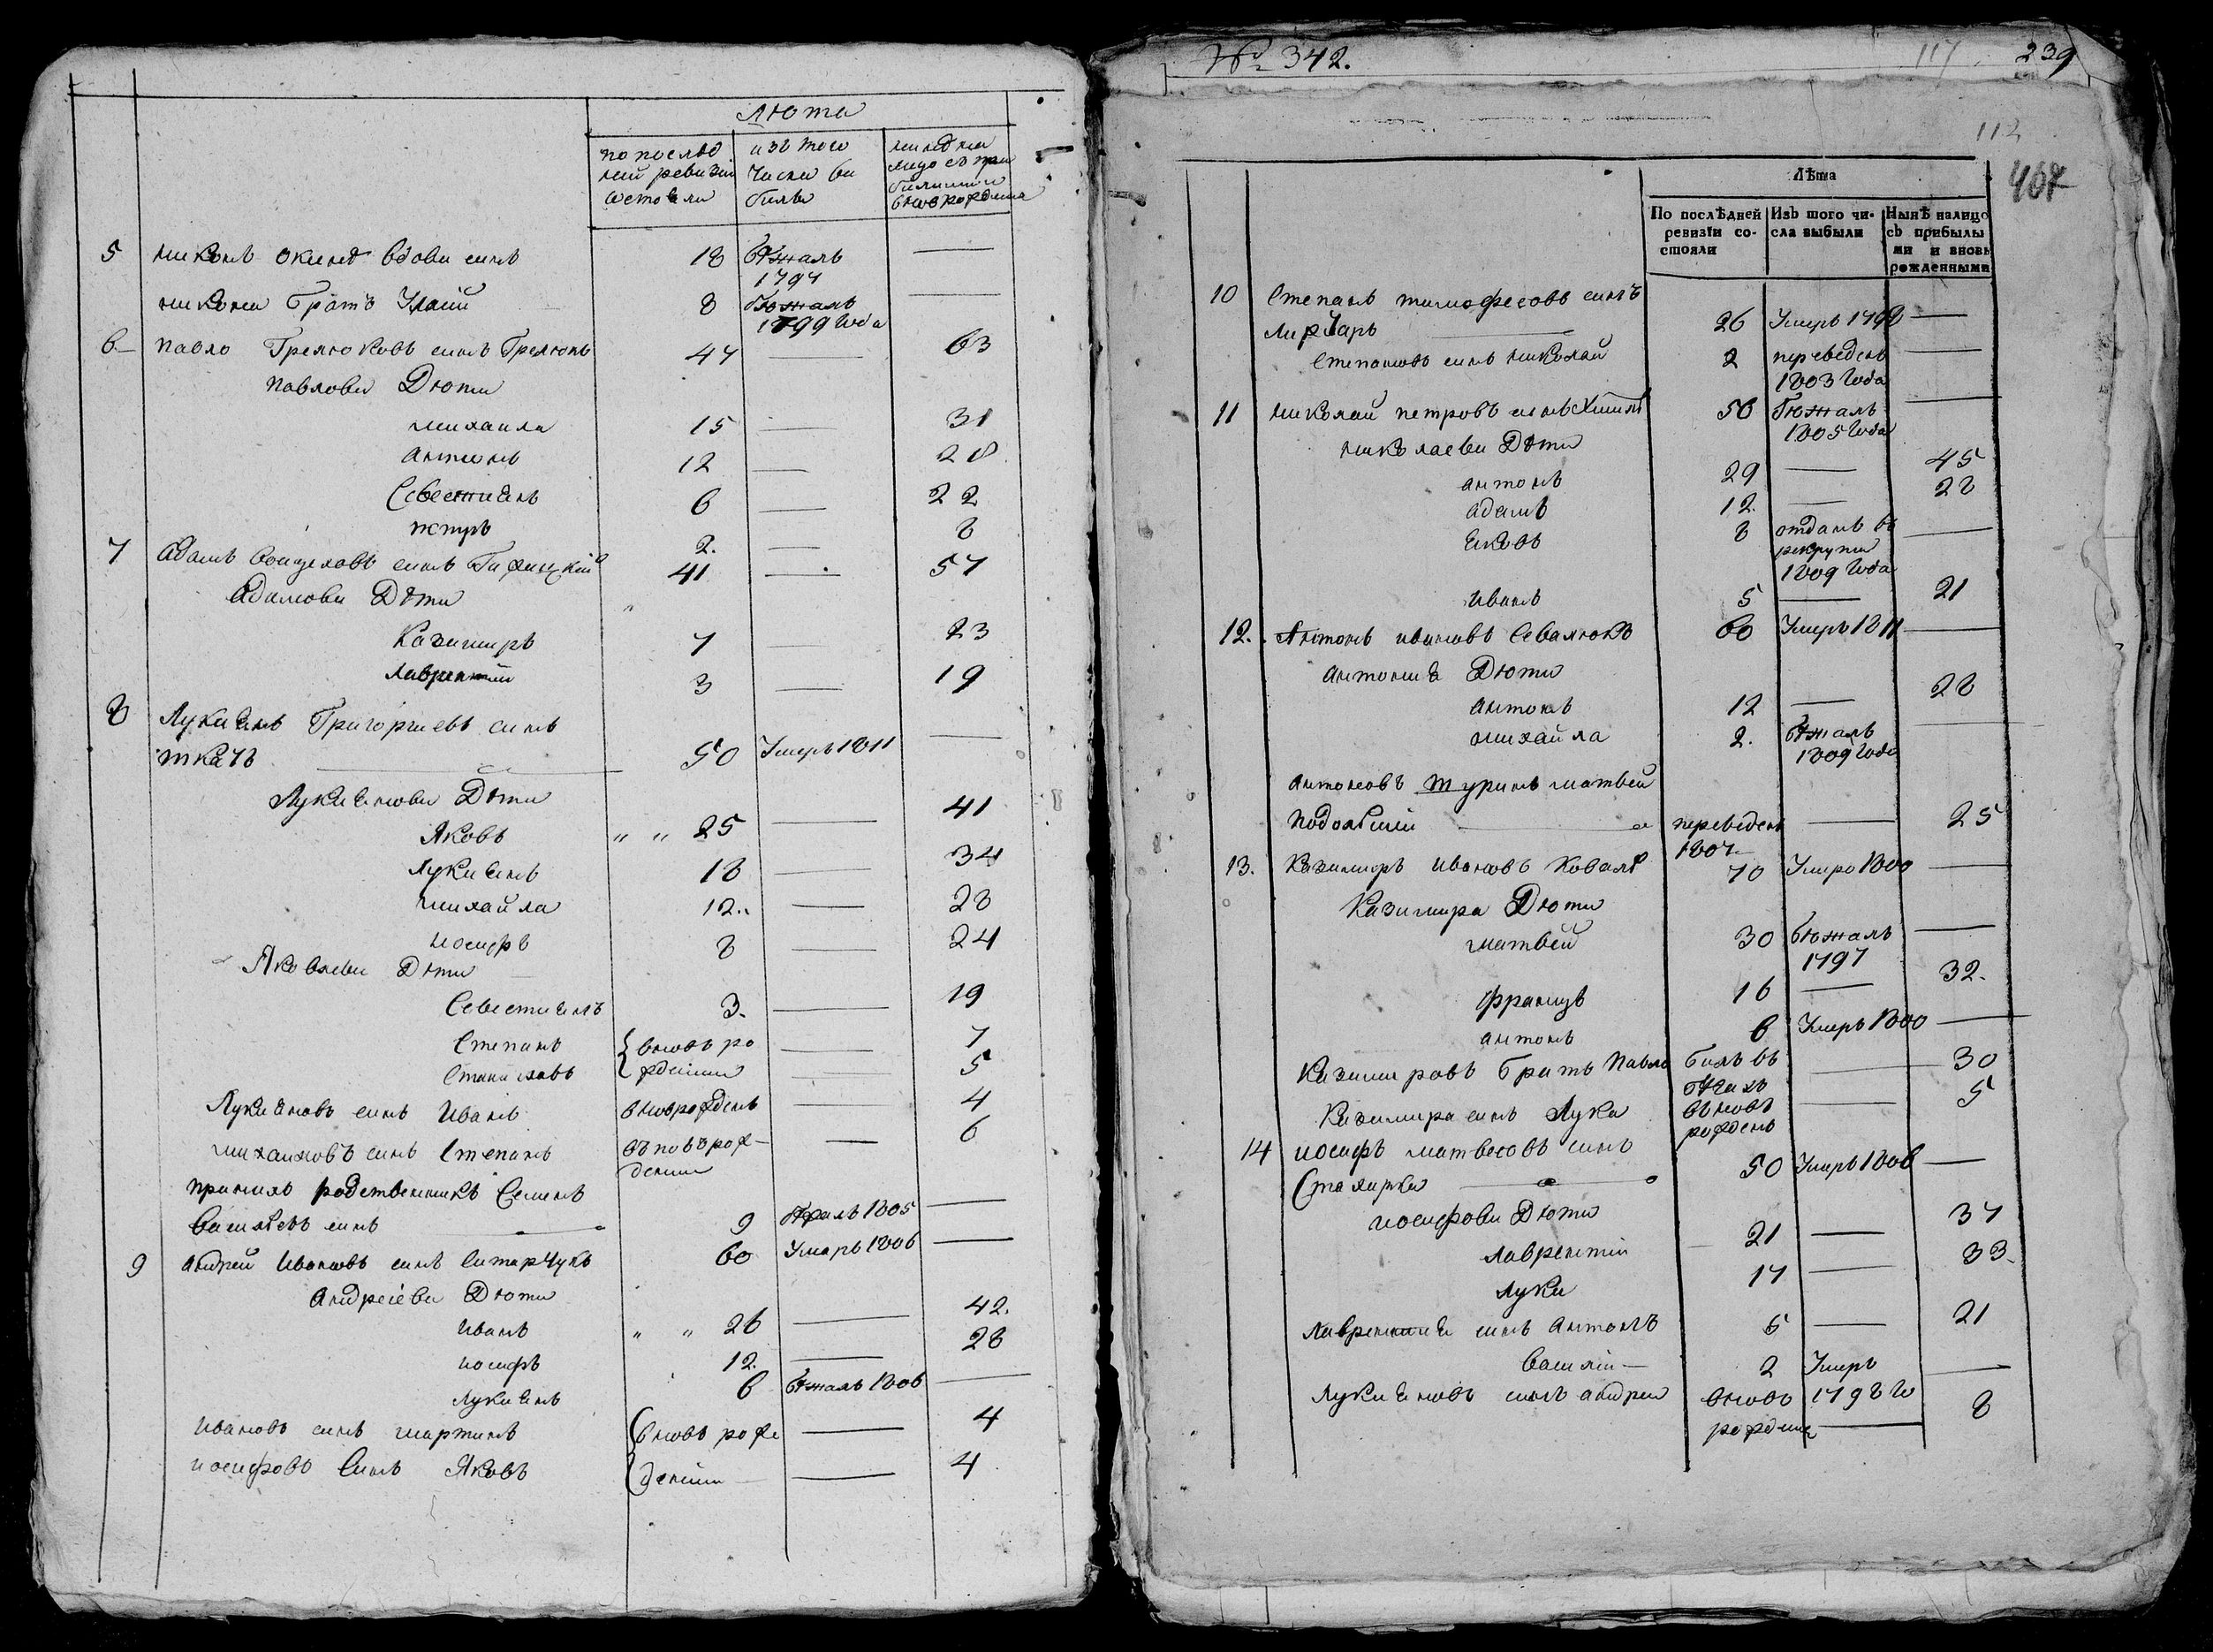 лѣта
по послѣд
ней ревизіи
состояли
изъ того
числа вы
были
нынѣ на
лицо съ при
былими и
вновь рождени
5 никонъ окинъ вдови синъ 18 бѣжалъ 1794 —
никона братъ 8 бѣжалъ 1799 года —
6 павло Грелюковъ синъ Грелюкъ 47 — 63
павлови Дѣти
михаила 15 — 31
антонъ 12 — 28
Севестиянъ 6 — 22
петръ 2. — 8
7 адамъ синъ 41 — 57
адамови Дѣти
Казимиръ 7 — 23
лаврентій 3 — 19
8 Лукиянъ Григориевъ синъ
ткачъ 50 Умеръ 1811 —
Лукиянови Дѣти
Яковъ " " 25 — 41
Лукиянъ 18 — 34
михайла 12.. — 28
иосифъ 8 — 24
Яковлеви Дѣти
Севестиянъ 3. — 19
Степанъ вновь ро — 7
Станиславъ жденни — 5
Лукияновъ синъ Иванъ вновь рожденъ — 4
михаиловъ синъ Степанъ вновь рож— — 6
денни
принялъ родственникъ Семенъ
Василевъ синъ 9 бѣжалъ 1805 —
9 андрей Ивановъ синъ Ситарчукъ 60 Умеръ 1806 —
Андреіеви Дѣти
Иванъ " " 26 — 42.
иосифъ 12. — 28
Лукиянъ 6 бѣжалъ 1806 —
Ивановъ синъ мартинъ вновь рож — 4
иосифовъ Синъ Яковъ денни — 4
№ 342.
117
239
112
407
Лѣта
По послѣдней
ревизіи со-
стояли
Изъ того чи-
сла выбыли
Нынѣ налицо
съ прибылы
ми и вновь
рожденными
10 Степанъ тимофеовъ синъ
Лирчаръ — 26 Умеръ 1798 —
Степановъ синъ николай 2 переведенъ —
1803 года
11 николай петровъ синъ 56 бѣжалъ —
1805 года
николаеви Дѣти
антонъ 29 — 45
адамъ 12. — 28
Яковъ 8 отданъ въ —
рекрути
1809 года
иванъ 5 — 21
12. Антонъ ивановъ Севалюкъ 60 Умеръ 1811 —
антония Дѣти
антонъ 12 — 28
михайла 2. бѣжалъ —
1809 года
антоновъ шуринъ матвей
подолскій — переведенъ — 25
1807
13. Казимиръ ивановъ Коваль 70 Умеръ 1800 —
Казимира Дѣти
матвей 30 бѣжалъ —
1797
францъ 16 — 32.
антонъ 6 Умеръ 1800 —
Казимировъ братъ павло билъ въ — 30
бѣгахъ
Казимира синъ Лука вновь — 5
рожденъ
14 иосифъ матвеовъ синъ
50 Умеръ 1806 —
иосифови Дѣти
лаврентій 21 — 37
Луки 17 — 33.
лаврентия синъ антонъ 5 — 21
Василій — 2 Умеръ —
1798 го
Лукияновъ синъ андреи вновь — 8
рожденъ